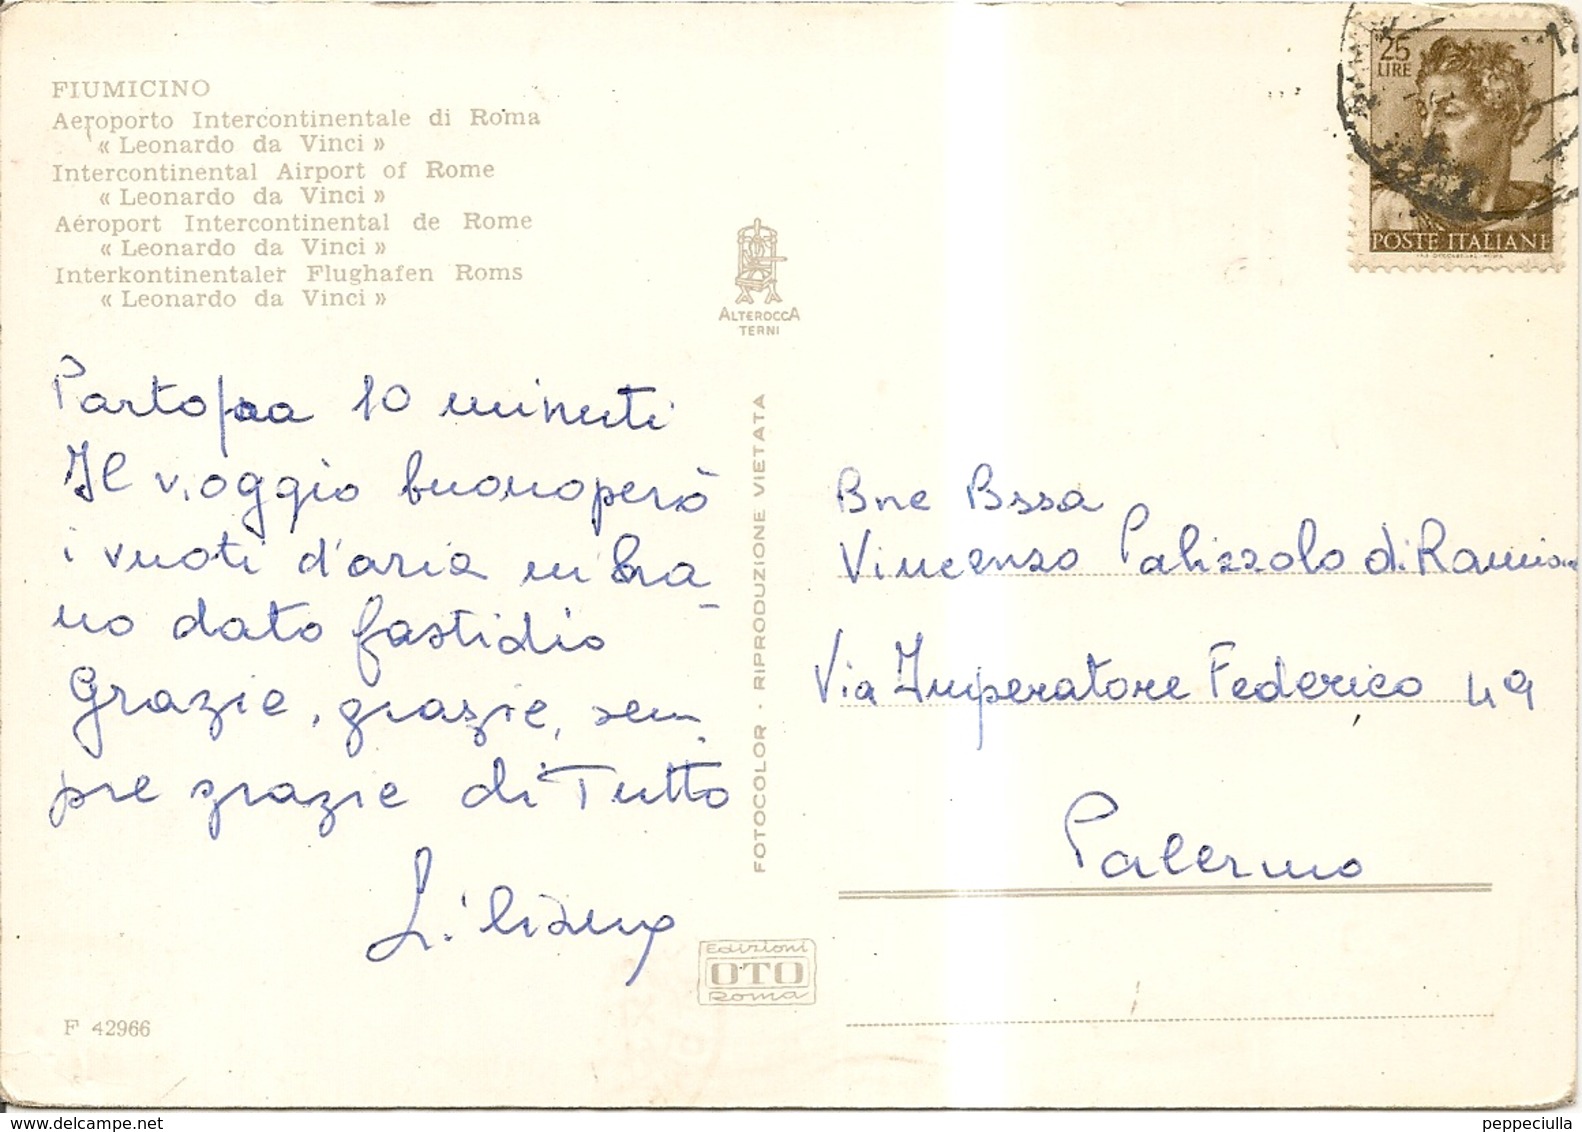 FIUMICINO
Aeroporto Intercontinentale di Roma
« Leonardo da Vinci »
Intercontinental Airport of Rome
« Leonardo da Vinci »
Aéroport Intercontinental de Rome
« Leonardo da Vinci »
Interkontinentaler Flughafen Roms
« Leonardo da Vinci »
Parto fra 10 minuti
Il viaggio buono però
i vuoti d'aria mi hra
no dato fastidio
Grazie, grazie, sem
pre grazie di Tutto
Liliana
F 42966
ALTEROCCA
TERNI
FOTOCOLOR - RIPRODUZIONE VIETATA
Edizioni
OTO
Roma
25
LIRE
POSTE ITALIANE
Bne Bssa
Vincenzo Palizzolo di Ramione
Via Imperatore Federico 49
Palermo
peppeciulla